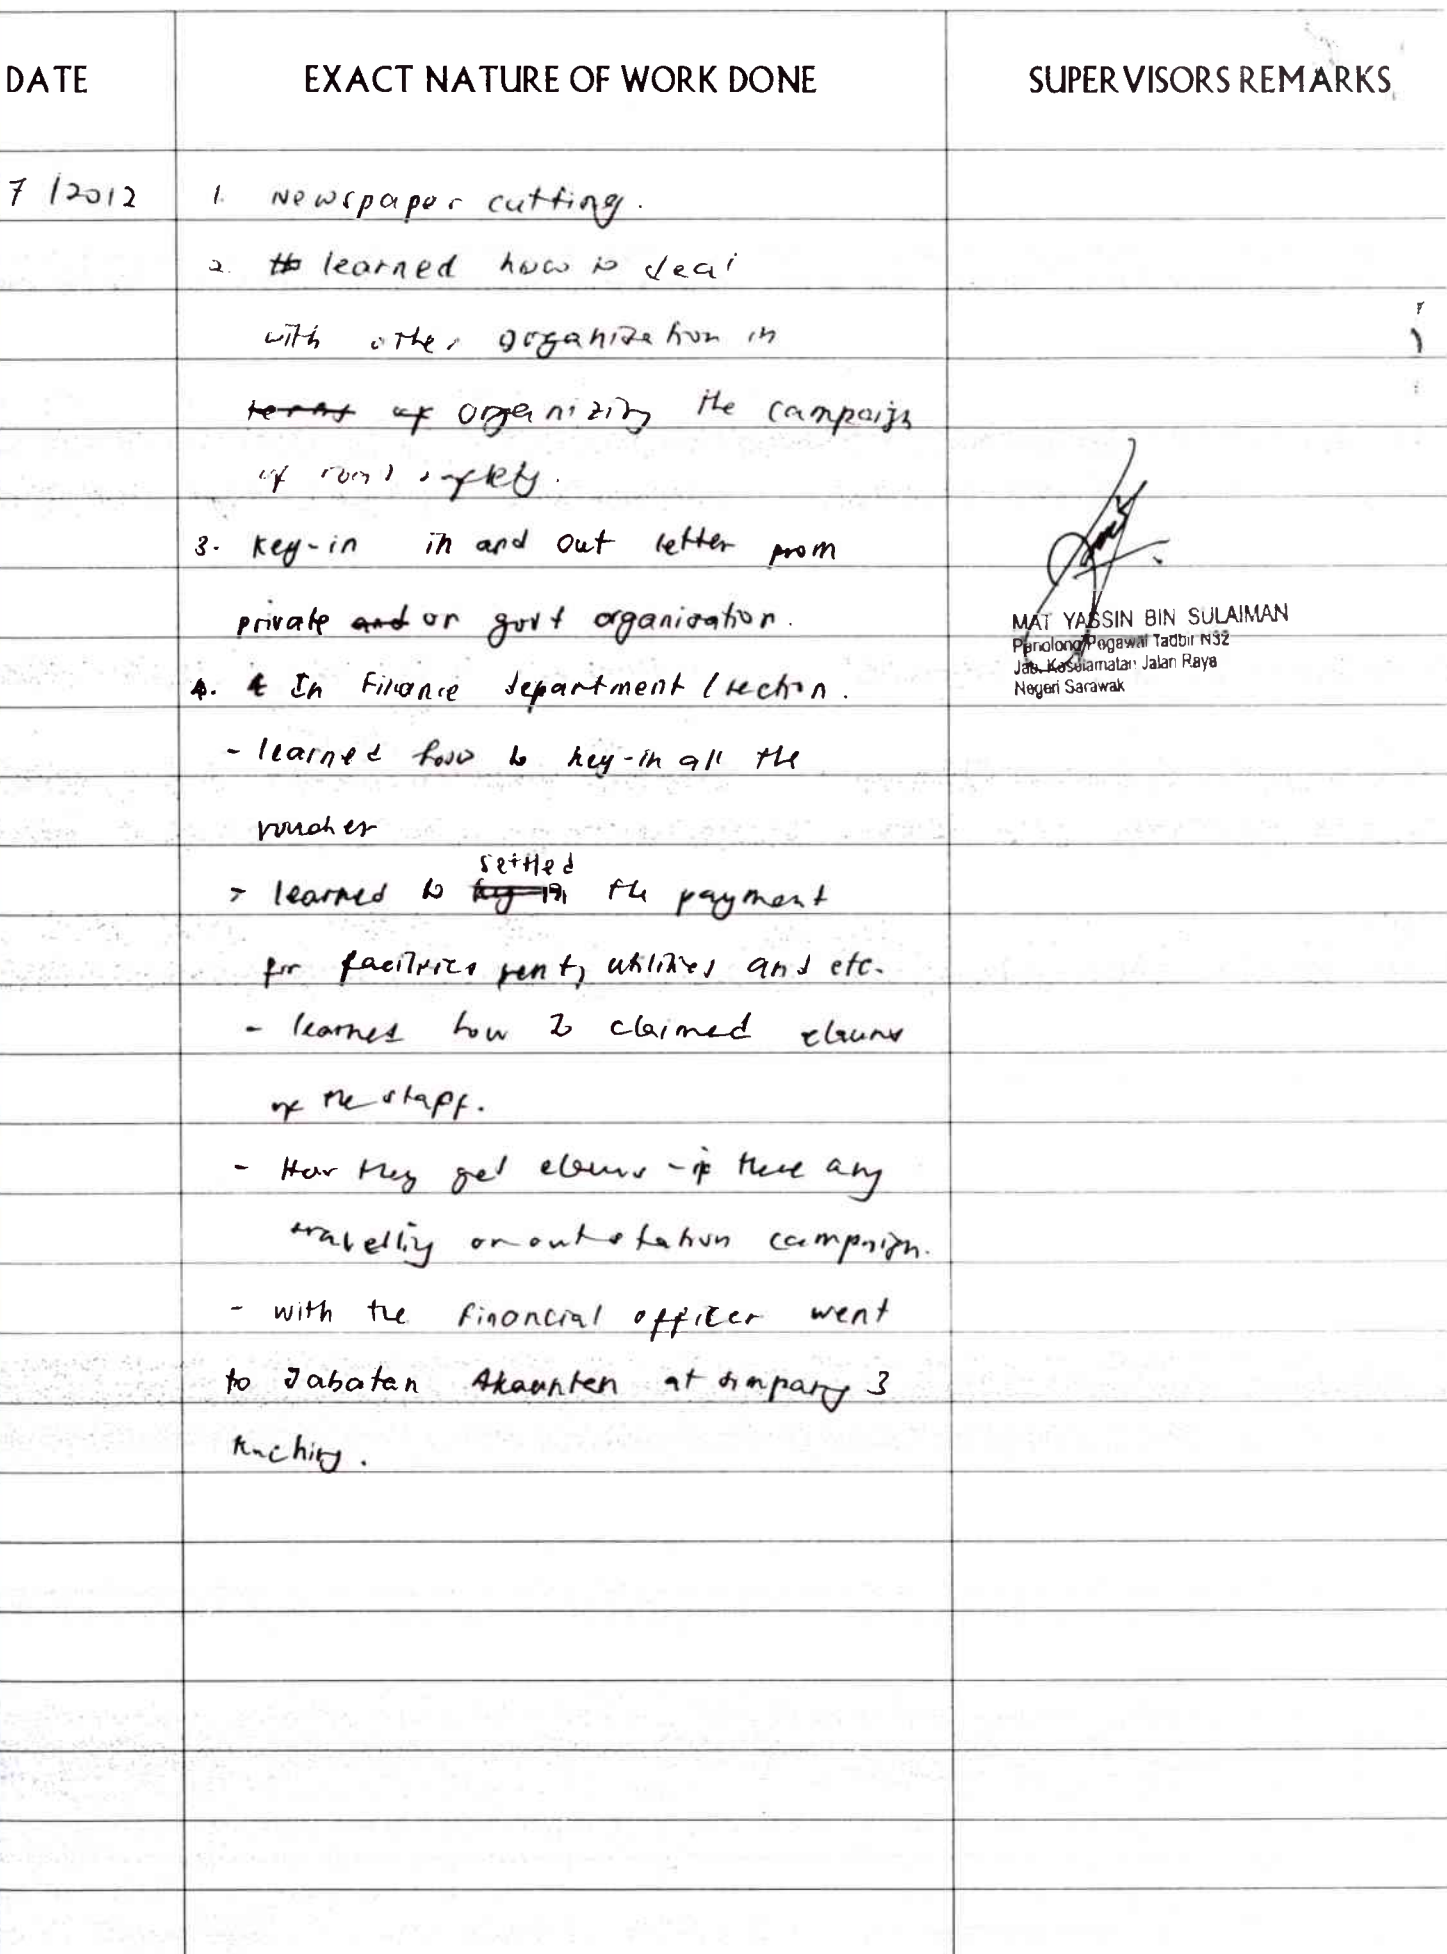 DATE EXACT NATURE OF WORK DONE SUPERVISORS REMARKS
7 /2012 1. Newspaper cutting.
2. learned how to deal
with other organization in
terms of organizing the campaign
of road safety.
3. Key-in in and out letter from
private and or govt organisation.
4. In Finance department / section.
- learned how to key-in all the
voucher
settled
- learned to key-in the payment
for facilities rent, utilities and etc.
- learned how to claimed claims
of the staff.
- How they get claims - if there any
travelling or outstation campaign.
- with the financial officer went
to Jabatan Akauntan at simpang 3
Kuching.
MAT YASSIN BIN SULAIMAN
Penolong Pegawai Tadbir N32
Jab. Keselamatan Jalan Raya
Negeri Sarawak